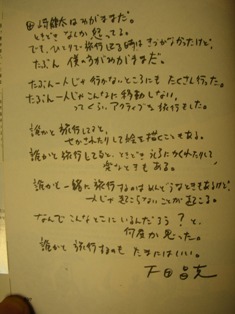 田崎健太はわがままだ。
ときどき なんか 怒ってる。
でも、ひとりで 旅行 してる時は きづかなかったけど、
たぶん 僕の方が わがままだ。
たぶん一人じゃ 行かないところにも たくさん行った。
たぶん一人じゃ こんなに 移動しない、
ってくらい、アクティブな 旅行をした。
誰かと 旅行してると、
せかされたりして 絵を描くこともある。
誰かと 旅行してると、ときどき
変なときもある。
誰かと一緒に 旅行するのは めんどうなときもあるけど、
一人じゃ 起こらないことが 起こる。
なんで こんなとこに いるんだろう？と、
何度か 思った。
誰かと 旅行するのも たまにはいい。
下田昌克